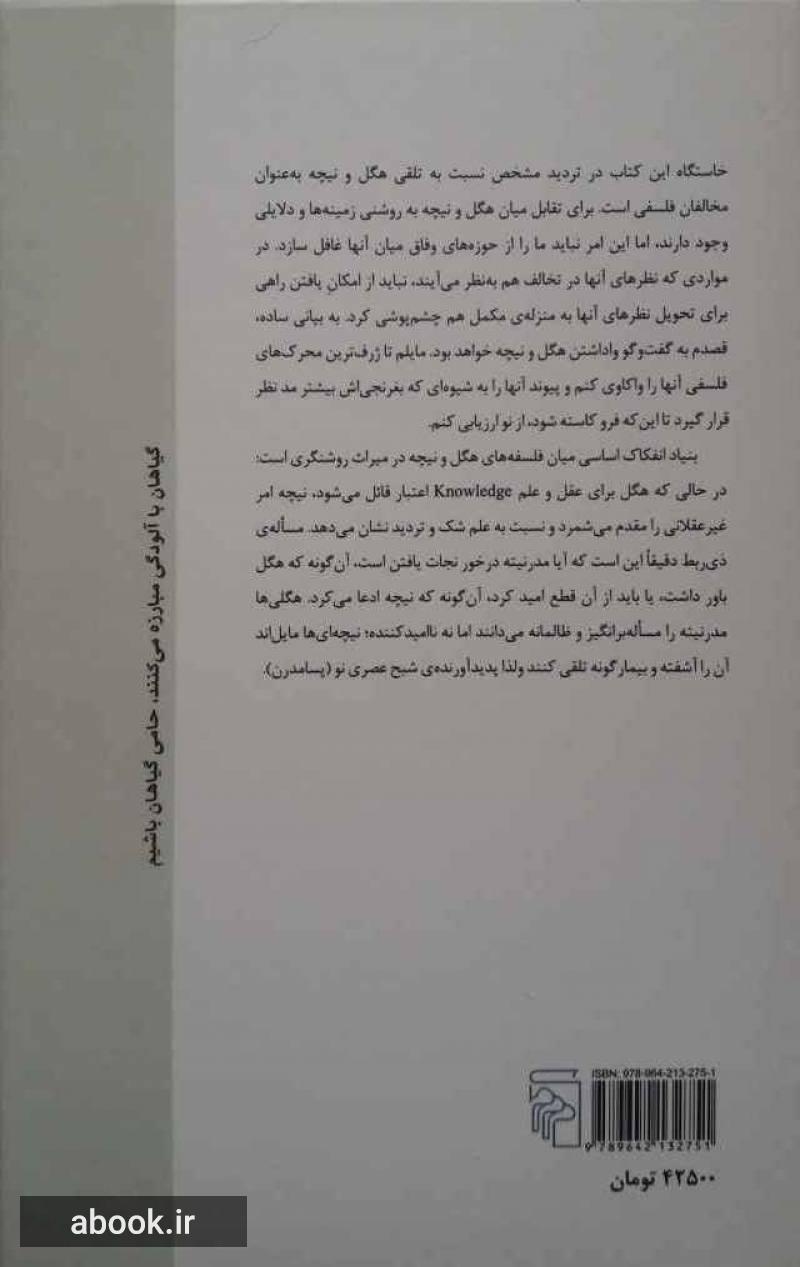 خاستگاه این کتاب در تردید مشخص نسبت به تلقی هگل و نیچه به‌عنوان
مخالفان فلسفی است. برای تقابل میان هگل و نیچه به روشنی زمینه‌ها و دلایلی
وجود دارند، اما این امر نباید ما را از حوزه‌های وفاق میان آنها غافل سازد. در
مواردی که نظرهای آنها در تخالف هم به‌نظر می‌آیند، نباید از امکانِ یافتن راهی
برای تحویل نظرهای آنها به منزله‌ی مکمل هم چشم‌پوشی کرد. به بیانی ساده،
قصدم به گفت‌وگو واداشتن هگل و نیچه خواهد بود. مایلم تا ژرف‌ترین محرک‌های
فلسفی آنها را واکاوی کنم و پیوند آنها را به شیوه‌ای که بغرنجی‌اش بیشتر مد نظر
قرار گیرد تا این‌که فرو کاسته شود، از نو ارزیابی کنم.
بنیاد انفکاک اساسی میان فلسفه‌های هگل و نیچه در میراث روشنگری است:
در حالی که هگل برای عقل و علم Knowledge اعتبار قائل می‌شود، نیچه امر
غیرعقلانی را مقدم می‌شمرد و نسبت به علم شک و تردید نشان می‌دهد. مسأله‌ی
ذی‌ربط دقیقاً این است که آیا مدرنیته درخور نجات یافتن است، آن‌گونه که هگل
باور داشت، یا باید از آن قطع امید کرد، آن‌گونه که نیچه ادعا می‌کرد. هگلی‌ها
مدرنیته را مسأله‌برانگیز و ظالمانه می‌دانند اما نه ناامیدکننده؛ نیچه‌ای‌ها مایل‌اند
آن را آشفته و بیمارگونه تلقی کنند ولذا پدیدآورنده‌ی شبح عصری نو (پسامدرن).
گیاهان با آلودگی مبارزه می‌کنند، حامی گیاهان باشیم
ISBN: 978-964-213-275-1
9 789642 132751
۴۲۵۰۰ تومان
abook.ir